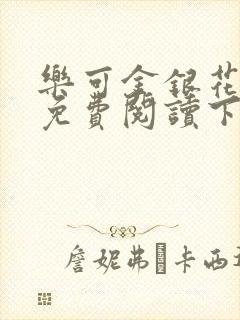 樂可金銀花
免費閱讀下
詹妮弗 卡西